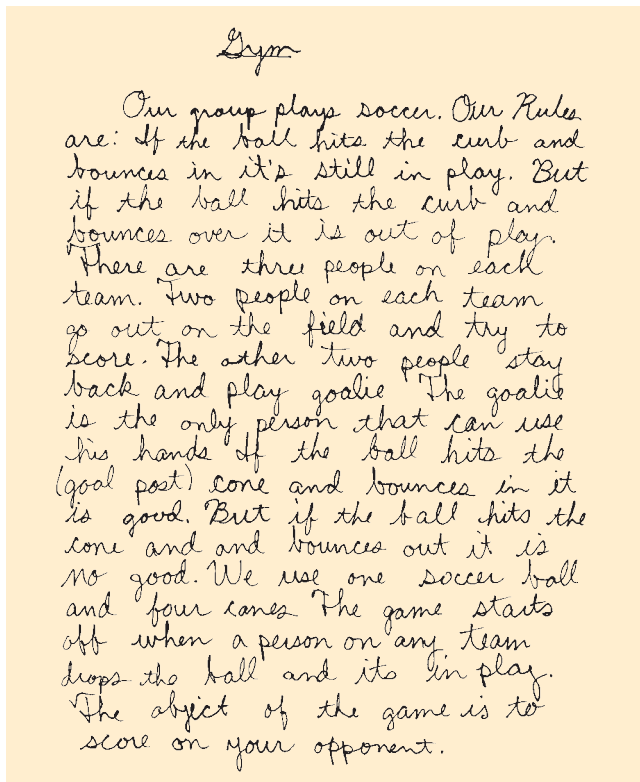 Gym
Our group plays soccer. Our Rules
are: If the ball hits the curb and
bounces in it's still in play. But
if the ball hits the curb and
bounces over it is out of play.
There are three people on each
team. Two people on each team
go out on the field and try to
score. The other two people stay
back and play goalie The goalie
is the only person that can use
his hands If the ball hits the
(goal post) cone and bounces in it
is good. But if the ball hits the
cone and and bounces out it is
no good. We use one soccer ball
and four canes The game starts
off when a person on any team
drops the ball and its in play.
The abject of the game is to
score on your opponent.